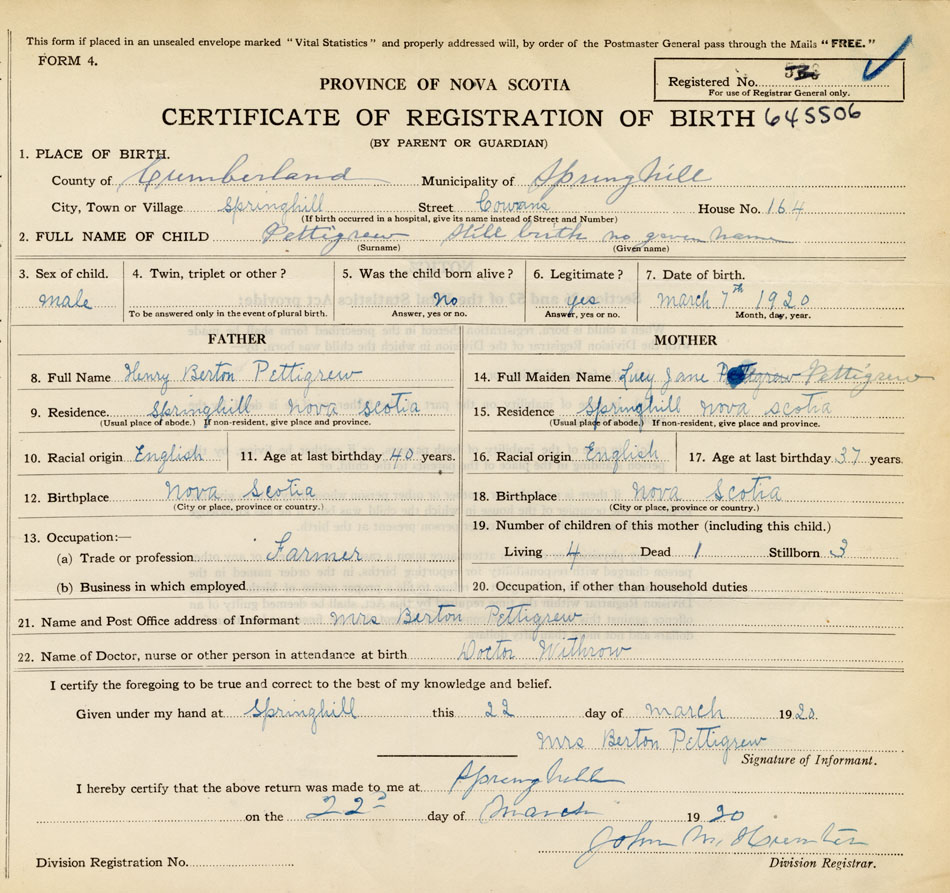 This form if placed in an unsealed envelope marked "Vital Statistics" and properly addressed will, by order of the Postmaster General pass through the Mails "FREE."
FORM 4.
PROVINCE OF NOVA SCOTIA
Registered No.
For use of Registrar General only.
CERTIFICATE OF REGISTRATION OF BIRTH 645506
(BY PARENT OR GUARDIAN)
1. PLACE OF BIRTH.
County of Cumberland Municipality of Springhill
City, Town or Village Springhill Street Cowans House No. 164
(If birth occurred in a hospital, give its name instead of Street and Number)
2. FULL NAME OF CHILD Pettigrew Still birth no given name
(Surname) (Given name)
3. Sex of child. 4. Twin, triplet or other? 5. Was the child born alive? 6. Legitimate? 7. Date of birth.
male No yes March 7th 1920
To be answered only in the event of plural birth. Answer, yes or no. Answer, yes or no. Month, day, year.
FATHER MOTHER
8. Full Name Henry Berton Pettigrew 14. Full Maiden Name Lucy Jane Pettigrew Pettigrew
9. Residence. Springhill Nova Scotia 15. Residence Springhill Nova Scotia
(Usual place of abode.) If non-resident, give place and province. (Usual place of abode.) If non-resident, give place and province.
10. Racial origin English 11. Age at last birthday 40 years. 16. Racial origin English 17. Age at last birthday 37 years.
12. Birthplace Nova Scotia 18. Birthplace Nova Scotia
(City or place, province or country.) (City or place, province or country.)
13. Occupation:— 19. Number of children of this mother (including this child.)
(a) Trade or profession Farmer Living 4 Dead 1 Stillborn 3
(b) Business in which employed 20. Occupation, if other than household duties
21. Name and Post Office address of Informant Mrs Berton Pettigrew
22. Name of Doctor, nurse or other person in attendance at birth Doctor Withrow
I certify the foregoing to be true and correct to the best of my knowledge and belief.
Given under my hand at Springhill this 22 day of March 1920.
Mrs Berton Pettigrew
Signature of Informant.
I hereby certify that the above return was made to me at Springhill
on the 22 day of March 1920
John M.
Division Registration No. Division Registrar.